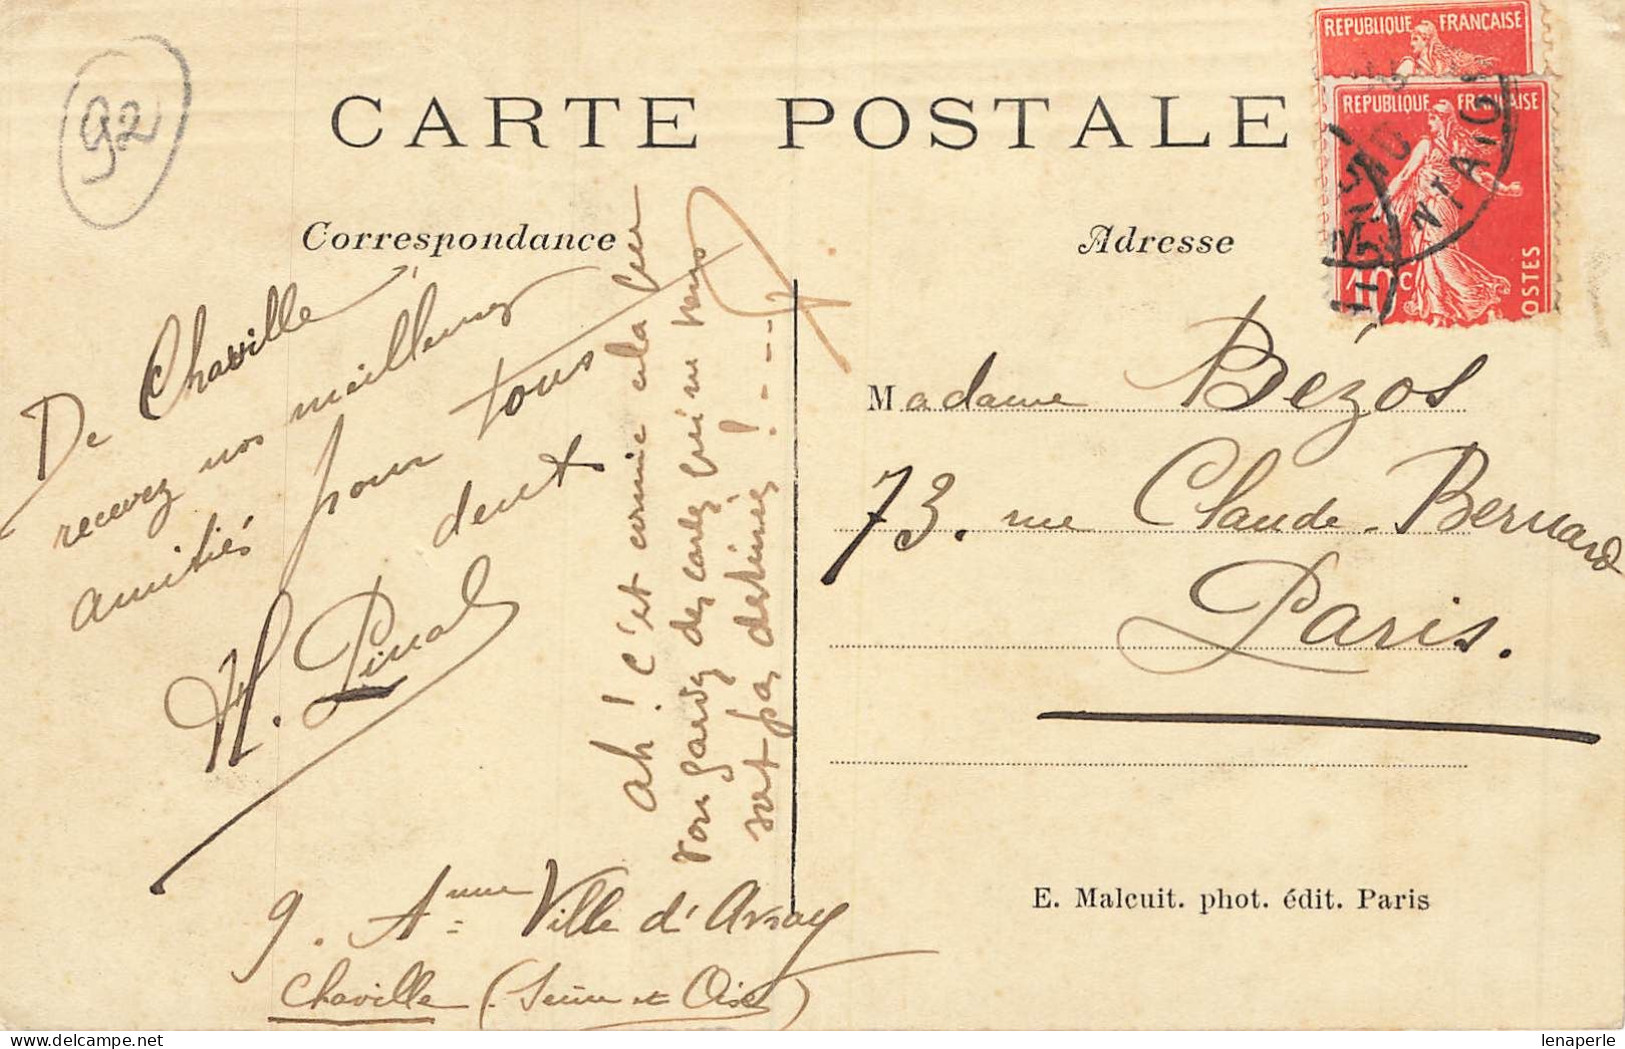 92
CARTE POSTALE
REPUBLIQUE FRANÇAISE
REPUBLIQUE FRANÇAISE
10c
POSTES
Correspondance
Adresse
De Chaville
recevez nos meilleures
amitiés pour tous
deux
H. Pinal
ah! c'est comme cela que
vous gardez des cartes qui ne vous
sont pas destinées!----
9. Anne Ville d'Avray
Chaville (Seine et Oise)
Madame Bézos
73. rue Claude-Bernard
Paris.
E. Malcuit. phot. édit. Paris
lenaperle